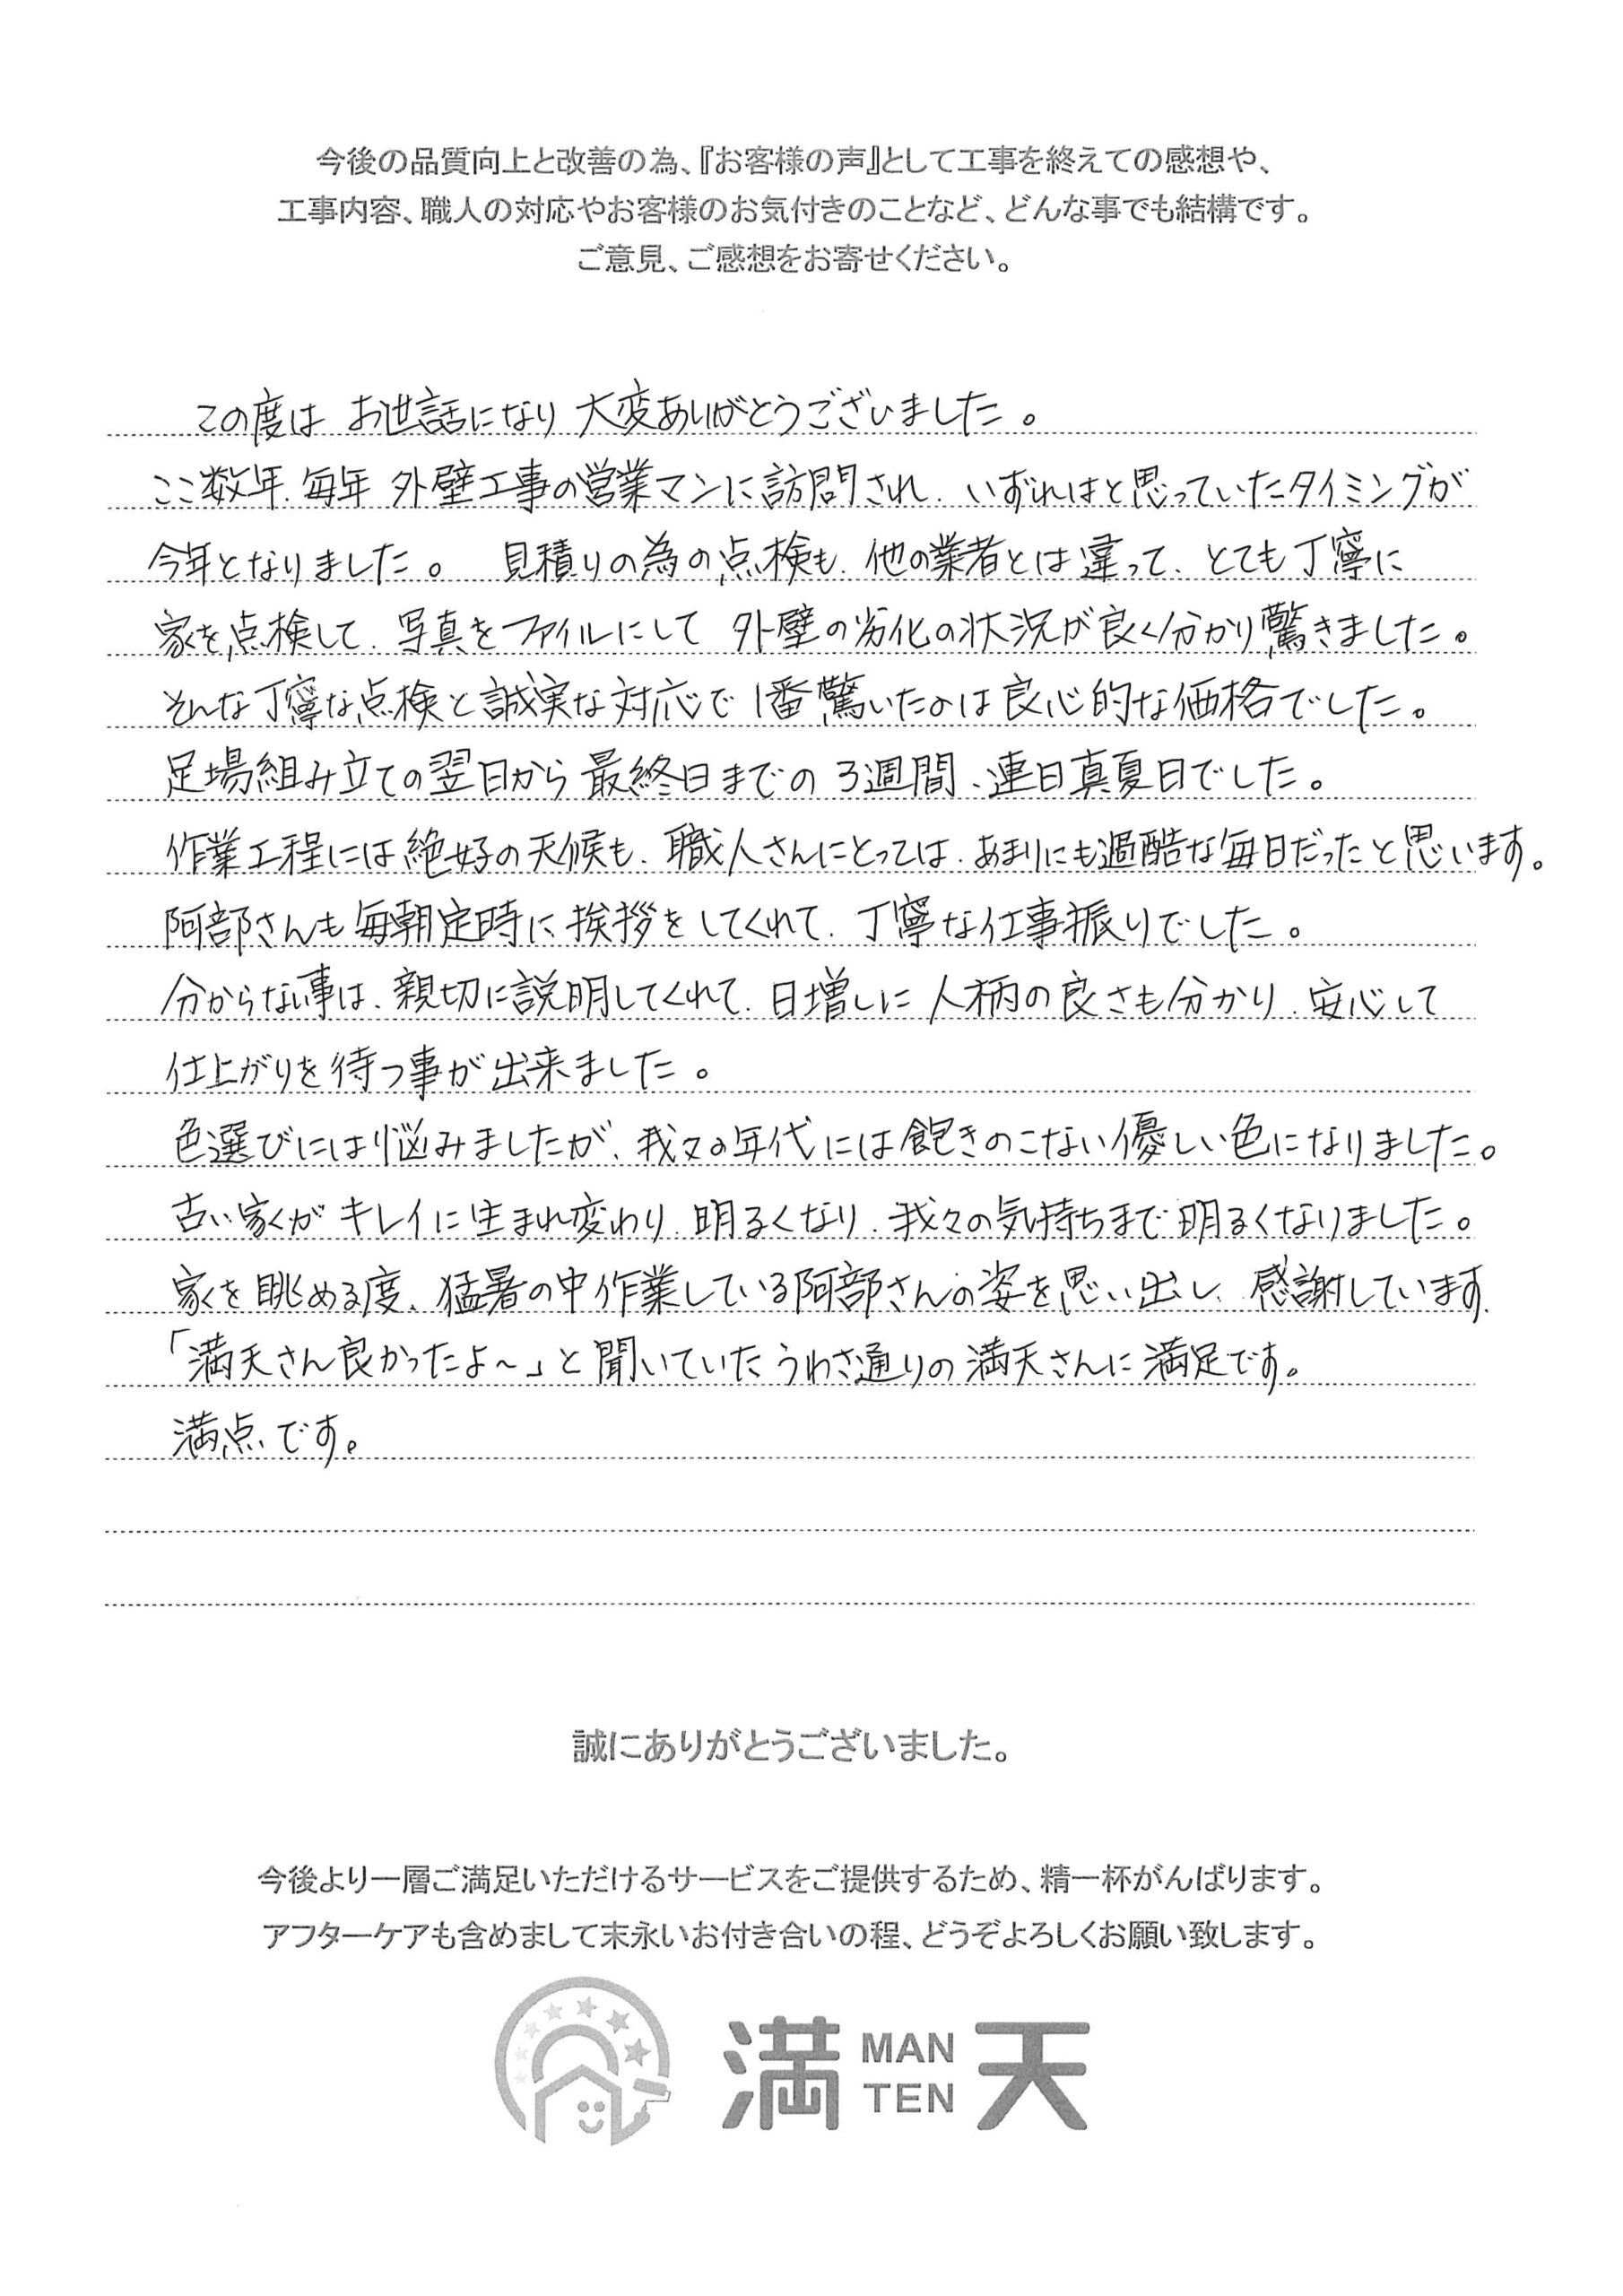 今後の品質向上と改善の為、『お客様の声』として工事を終えての感想や、
工事内容、職人の対応やお客様のお気付きのことなど、どんな事でも結構です。
ご意見、ご感想をお寄せください。
この度は お世話になり 大変ありがとうございました。
ここ数年、毎年 外壁工事の営業マンに訪問され、いずれはと思っていたタイミングが
今年となりました。 見積りの為の点検も、他の業者とは違って、とても丁寧に
家を点検して、写真をファイルにして 外壁の劣化の状況が良く分かり驚きました。
そんな丁寧な点検と誠実な対応で1番驚いたのは良心的な価格でした。
足場組み立ての翌日から最終日までの3週間、連日真夏日でした。
作業工程には絶好の天候も、職人さんにとっては、あまりにも過酷な毎日だったと思います。
阿部さんも毎朝定時に挨拶をしてくれて、丁寧な仕事振りでした。
分からない事は、親切に説明してくれて、日増しに人柄の良さも分かり、安心して
仕上がりを待つ事が出来ました。
色選びには悩みましたが、我々の年代には飽きのこない優しい色になりました。
古い家がキレイに生まれ変わり、明るくなり、我々の気持ちまで明るくなりました。
家を眺める度、猛暑の中作業している阿部さんの姿を思い出し、感謝しています。
「満天さん良かったよ〜」と聞いていたうわさ通りの満天さんに満足です。
満点です。
誠にありがとうございました。
今後より一層ご満足いただけるサービスをご提供するため、精一杯がんばります。
アフターケアも含めまして末永いお付き合いの程、どうぞよろしくお願い致します。
満 MAN TEN 天